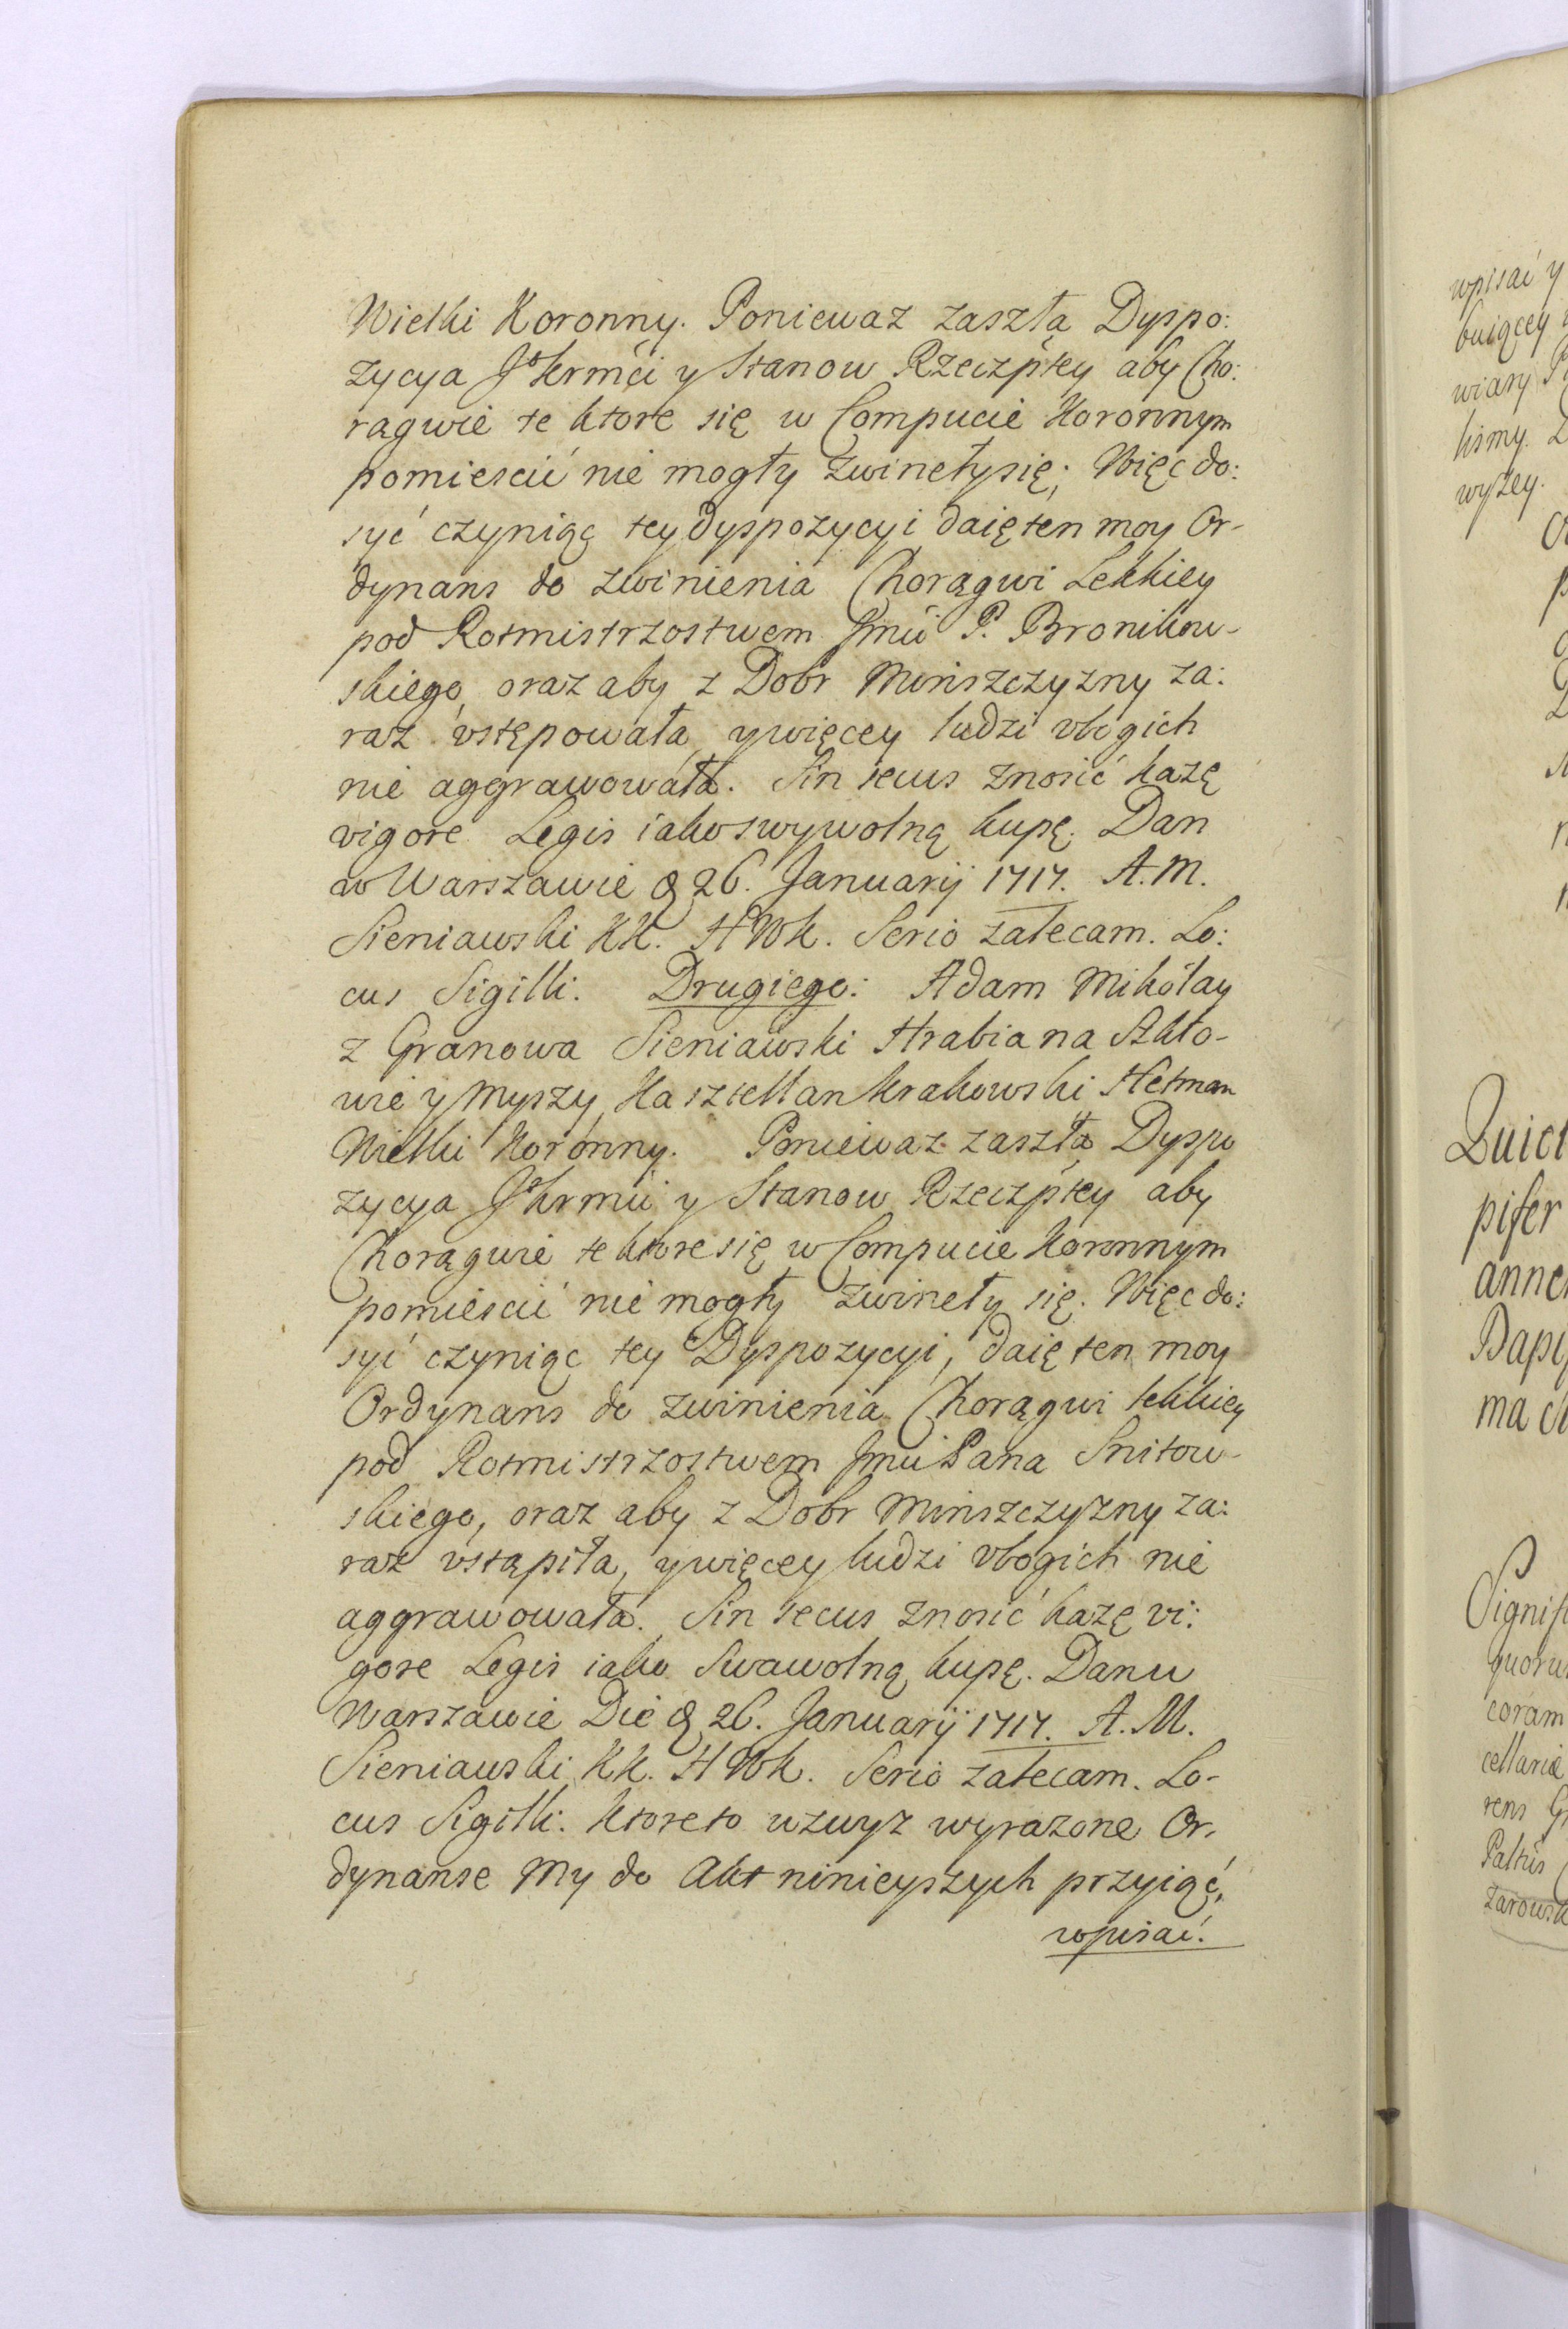 Wielki Koronny. Poniewaz zaszła Dyspo:
zycya JoKrmći y Stanow Rzeczpłey aby Cho:
rągwie te ktore się w Compucie Koronnym
pomiescić nie mogły zwinełysię; Więc do:
syć czyniąc tey dyspozycyi daię ten moy Or-
dynans do zwinienia Chorągwi Lekkiey
pod Rotmistrzostwem Jmći P. Bronikow-
skiego, oraz aby z Dobr Minszczyzny za:
raz vstępowała, ywięcey ludzi vbogich
nie aggrawowała. Sin secus znosić każę
vigore Legis iako swywolną kupę. Dan
w Warszawie d 26. Januarij 1717. A.M.
Sieniawski KK. HWK. Serio zalecam. Lo:
cus Sigilli. Drugiego: Adam Mikołay
z Granowa Sieniawski Hrabia na Szkło-
wie y Myszy, Kasztellan Krakowski Hetman
Wielki Koronny. Poniewaz zaszła Dyspo
zycya JoKrmći y Stanow Rzeczpłey aby
Chorągwie te ktore się w Compucie Koronnym
pomiescić nie mogły zwineły się. Więc do:
syć czyniąc tey Dyspozycyi, daię ten moy
Ordynans do zwinienia Chorągwi lekkiey
pod Rotmistrzostwem Jmći Pana Snitow-
skiego, oraz aby z Dobr Minszczyzny za:
raz vstąpiła, ywięcey ludzi vbogich nie
aggrawowała. Sin secus znosić każę vi:
gore Legis iako Swawolną kupę. Dan w
Warszawie Die d 26. Januarij 1717. A.M.
Sieniawski KK. HWK. Serio zalecam. Lo-
cus Sigilli. Ktore to wzwyz wyrazone Or-
dynanse My do Akt ninieyszych przyiąć,
wpisać.
wpisać y
wiary
wyzey.
pifer
ma
coram
cellariæ